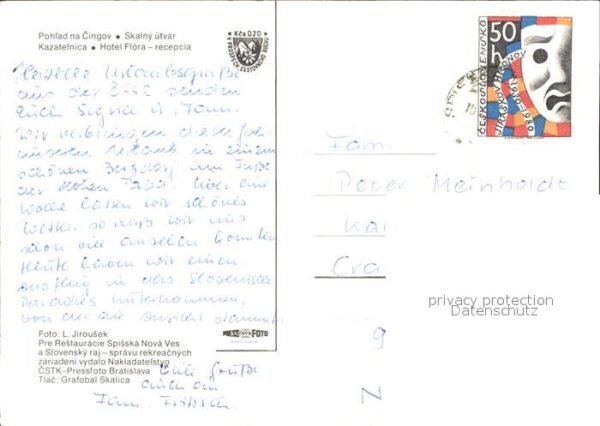 Pohľad na Čingov • Skalný útvar
Kazateľnica • Hotel Flóra – recepcia
Kčs 0,20
V PROSPECH CESTOVNÉHO RUCHU
Herzliche Urlaubsgrüße
aus der ČSSR senden
Euch Sigrid u. Fam.
Wir verbringen dieses Jahr
unseren Urlaub in einem
schönen Bergdorf am Fuße
der Hohen Tatra. Über eine
Woche hatten wir schönes
Wetter, so daß wir uns
schon viel ansehen konnten.
Heute haben wir einen
Ausflug in das Slowenische
Paradies unternommen,
von der die Ansicht stammt.
Viele Grüße
auch an
Fam. Fritzsch.
Foto: L. Jiroušek
Pre Reštaurácie Spišská Nová Ves
a Slovenský raj – správu rekreačných
zariadení vydalo Nakladateľstvo
ČSTK–Pressfoto Bratislava
Tlač: Grafobal Skalica
PRESSFOTO
BRATISLAVA
50 h
ČESKOSLOVENSKO
JIRÁSKŮV HRONOV
1930–1980
Fam.
Peter Meinholdt
Kai
Cra
9
N
privacy protection
Datenschutz